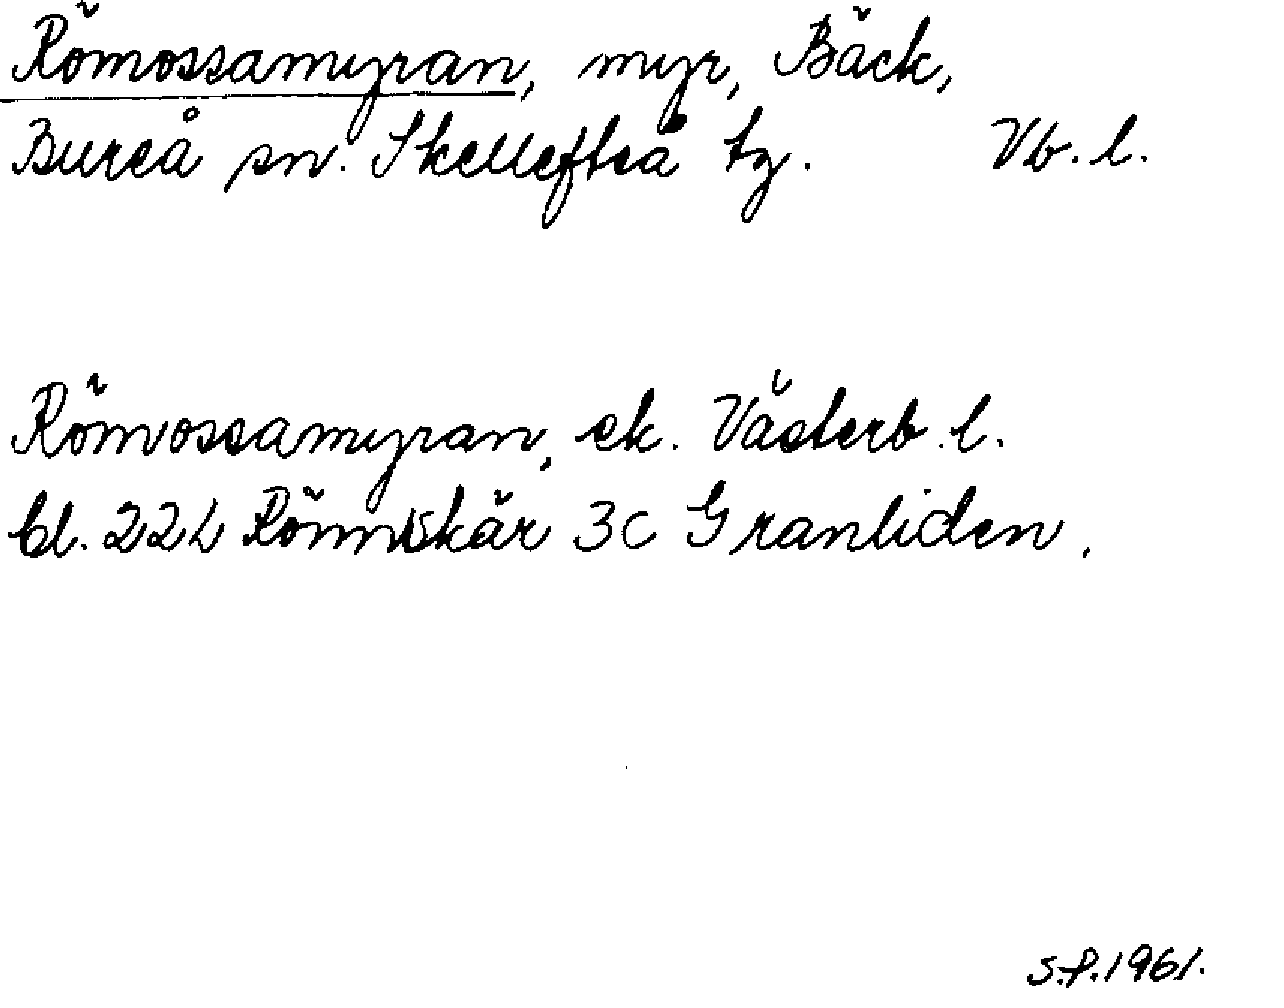 Römossamyran, myr, Bäck,
Bureå sn. Skellefteå tg. Vb. l.
Römossamyran, ek. Västerb. l.
bl. 22L Rönnskär 3c Granliden.
S.P. 1961.